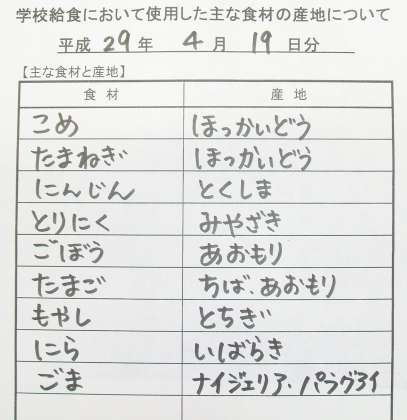 学校給食において使用した主な食材の産地について
平成 29 年 4 月 19 日分
【主な食材と産地】
食材 産地
こめ ほっかいどう
たまねぎ ほっかいどう
にんじん とくしま
とりにく みやざき
ごぼう あおもり
たまご ちば、あおもり
もやし とちぎ
にら いばらき
ごま ナイジェリア、パラグアイ